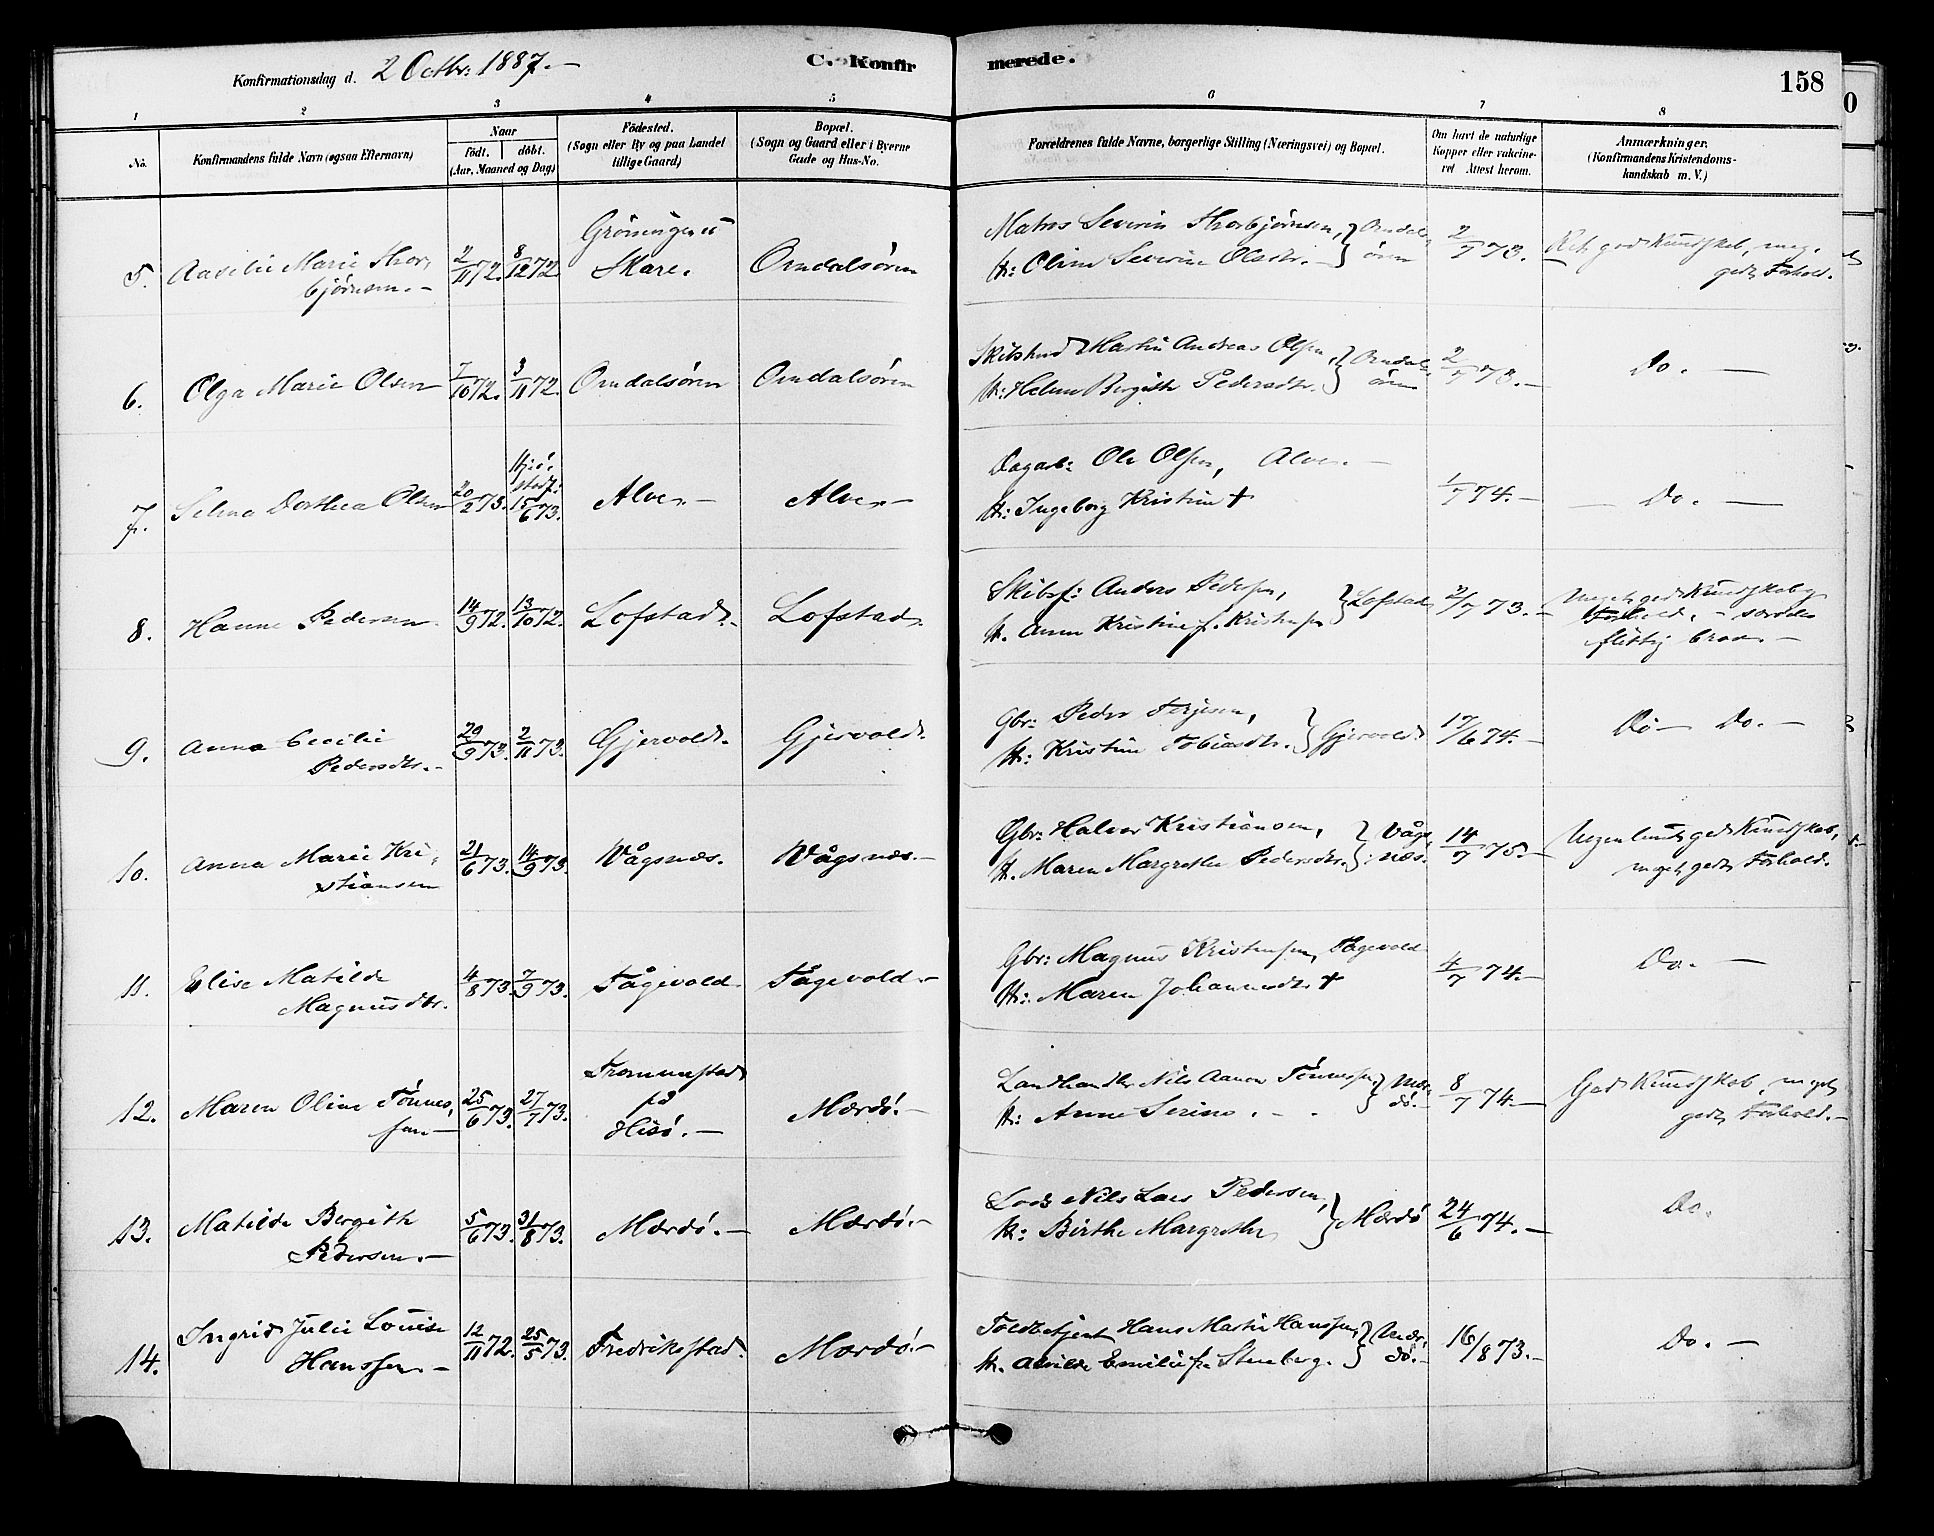 Konfirmationsdag d. 2 Octbr: 1887.-
C. Konfirmerede.
158
1 2 3 4 5 6 7 8
No.
Konfirmandens fulde Navn (ogsaa Efternavn)
Naar
Födt. döbt.
(Aar, Maaned og Dag)
Födested.
(Sogn eller By og paa Landet
tillige Gaard)
Bopæl.
(Sogn og Gaard eller i Byerne
Gade og Hus-No.
Forældrenes fulde Navne, borgerlige Stilling (Næringsvei) og Bopæl.
Om havt de naturlige
Kopper eller vakcine-
ret Attest herom.
Anmærkninger.
(Konfirmandens Kristendoms-
kundskab m. V.)
5. Aasilie Marie Thor,
bjørnsen.-
2/11 72. 8/12 72
Gröningen
Skare.
Omdalsören
Matros Severin Thorbjørnsen,
H: Oline Severine Olsdtr.
Omdals
ören
2/7 73.
Ret god Kundskab, meg.
godt Forhold.
6. Olga Marie Olsen
7/10 72. 3/11 72.
Omdalsören
Omdalsören
Martin Andreas Olsen,
H: Helene Bergithe Pedersdtr.
Omdals
ören
2/7 73.-
Do. -
7. Selma Dorthea Olsen
20/2 73. 15/6 73.
Alve.-
Alve.-
Dagarb: Ole Olsen, Alve.-
H: Ingeborg Kristine †
1/7 74.-
- Do. -
8. Hanne Pedersen.
14/9 72. 13/10 72.
Lofstad.
Lofstad.
Skibsf: Anders Pedersen,
H. Anne Kristine f. Kristensen
Lofstad
2/7 73.-
Meget god Kundskab og
Forhold. - særdeles
flittig brav.-
9. Anna Cecilie
Pedersdtr.-
29/9 73. 2/11 73.
Gjervold.
Gjervold.
Gbr: Peder Terjesen,
H: Kristine Tobiasdtr.
Gjervold
17/6 74.-
Do - Do. -
10. Anna Marie Kri,
stiansen
21/6 73. 14/9 73.
Vågsnæs.
Vågsnæs.-
Gbr: Halvor Kristiansen,
H. Maren Margrethe Pedersdtr.
Vågs,
næs.
14/7 75.-
Nogenlunde god Kundskab,
meget godt Forhold.
11. Elise Matilde
Magnusdtr.
4/8 73. 7/9 73.
Fågevold.
Fågevold.-
Gbr: Magnus Kristensen, Fågevold
H: Maren Johannesdtr. †
4/7 74.-
Do. -
12. Maren Oline Tönnes,
sen-
25/6 73. 27/7 73.
Trommestad
på
Hisö.-
Mærdö.-
Landhandler Nils Aanon Tönnessen
H: Anne Serine.
Mær
dö.-
8/7 74.-
God Kundskab, meget
godt Forhold.-
13. Matilde Bergithe
Pedersen.-
5/6 73. 31/8 73.
Mærdö.-
Mærdö.-
Lods Nils Lars Pedersen,
H: Birthe Margrethe
Mærdö
24/6 74.-
Do.
14. Ingrid Julie Louise
Hanssen.-
12/11 72. 25/5 73.
Fredrikstad.
Mærdö.-
Toldbetjent Hans Martin Hanssen,
H. Alvilde Emilie f. Stenberg.
Mær,
dö.-
16/8 73.-
Do. -